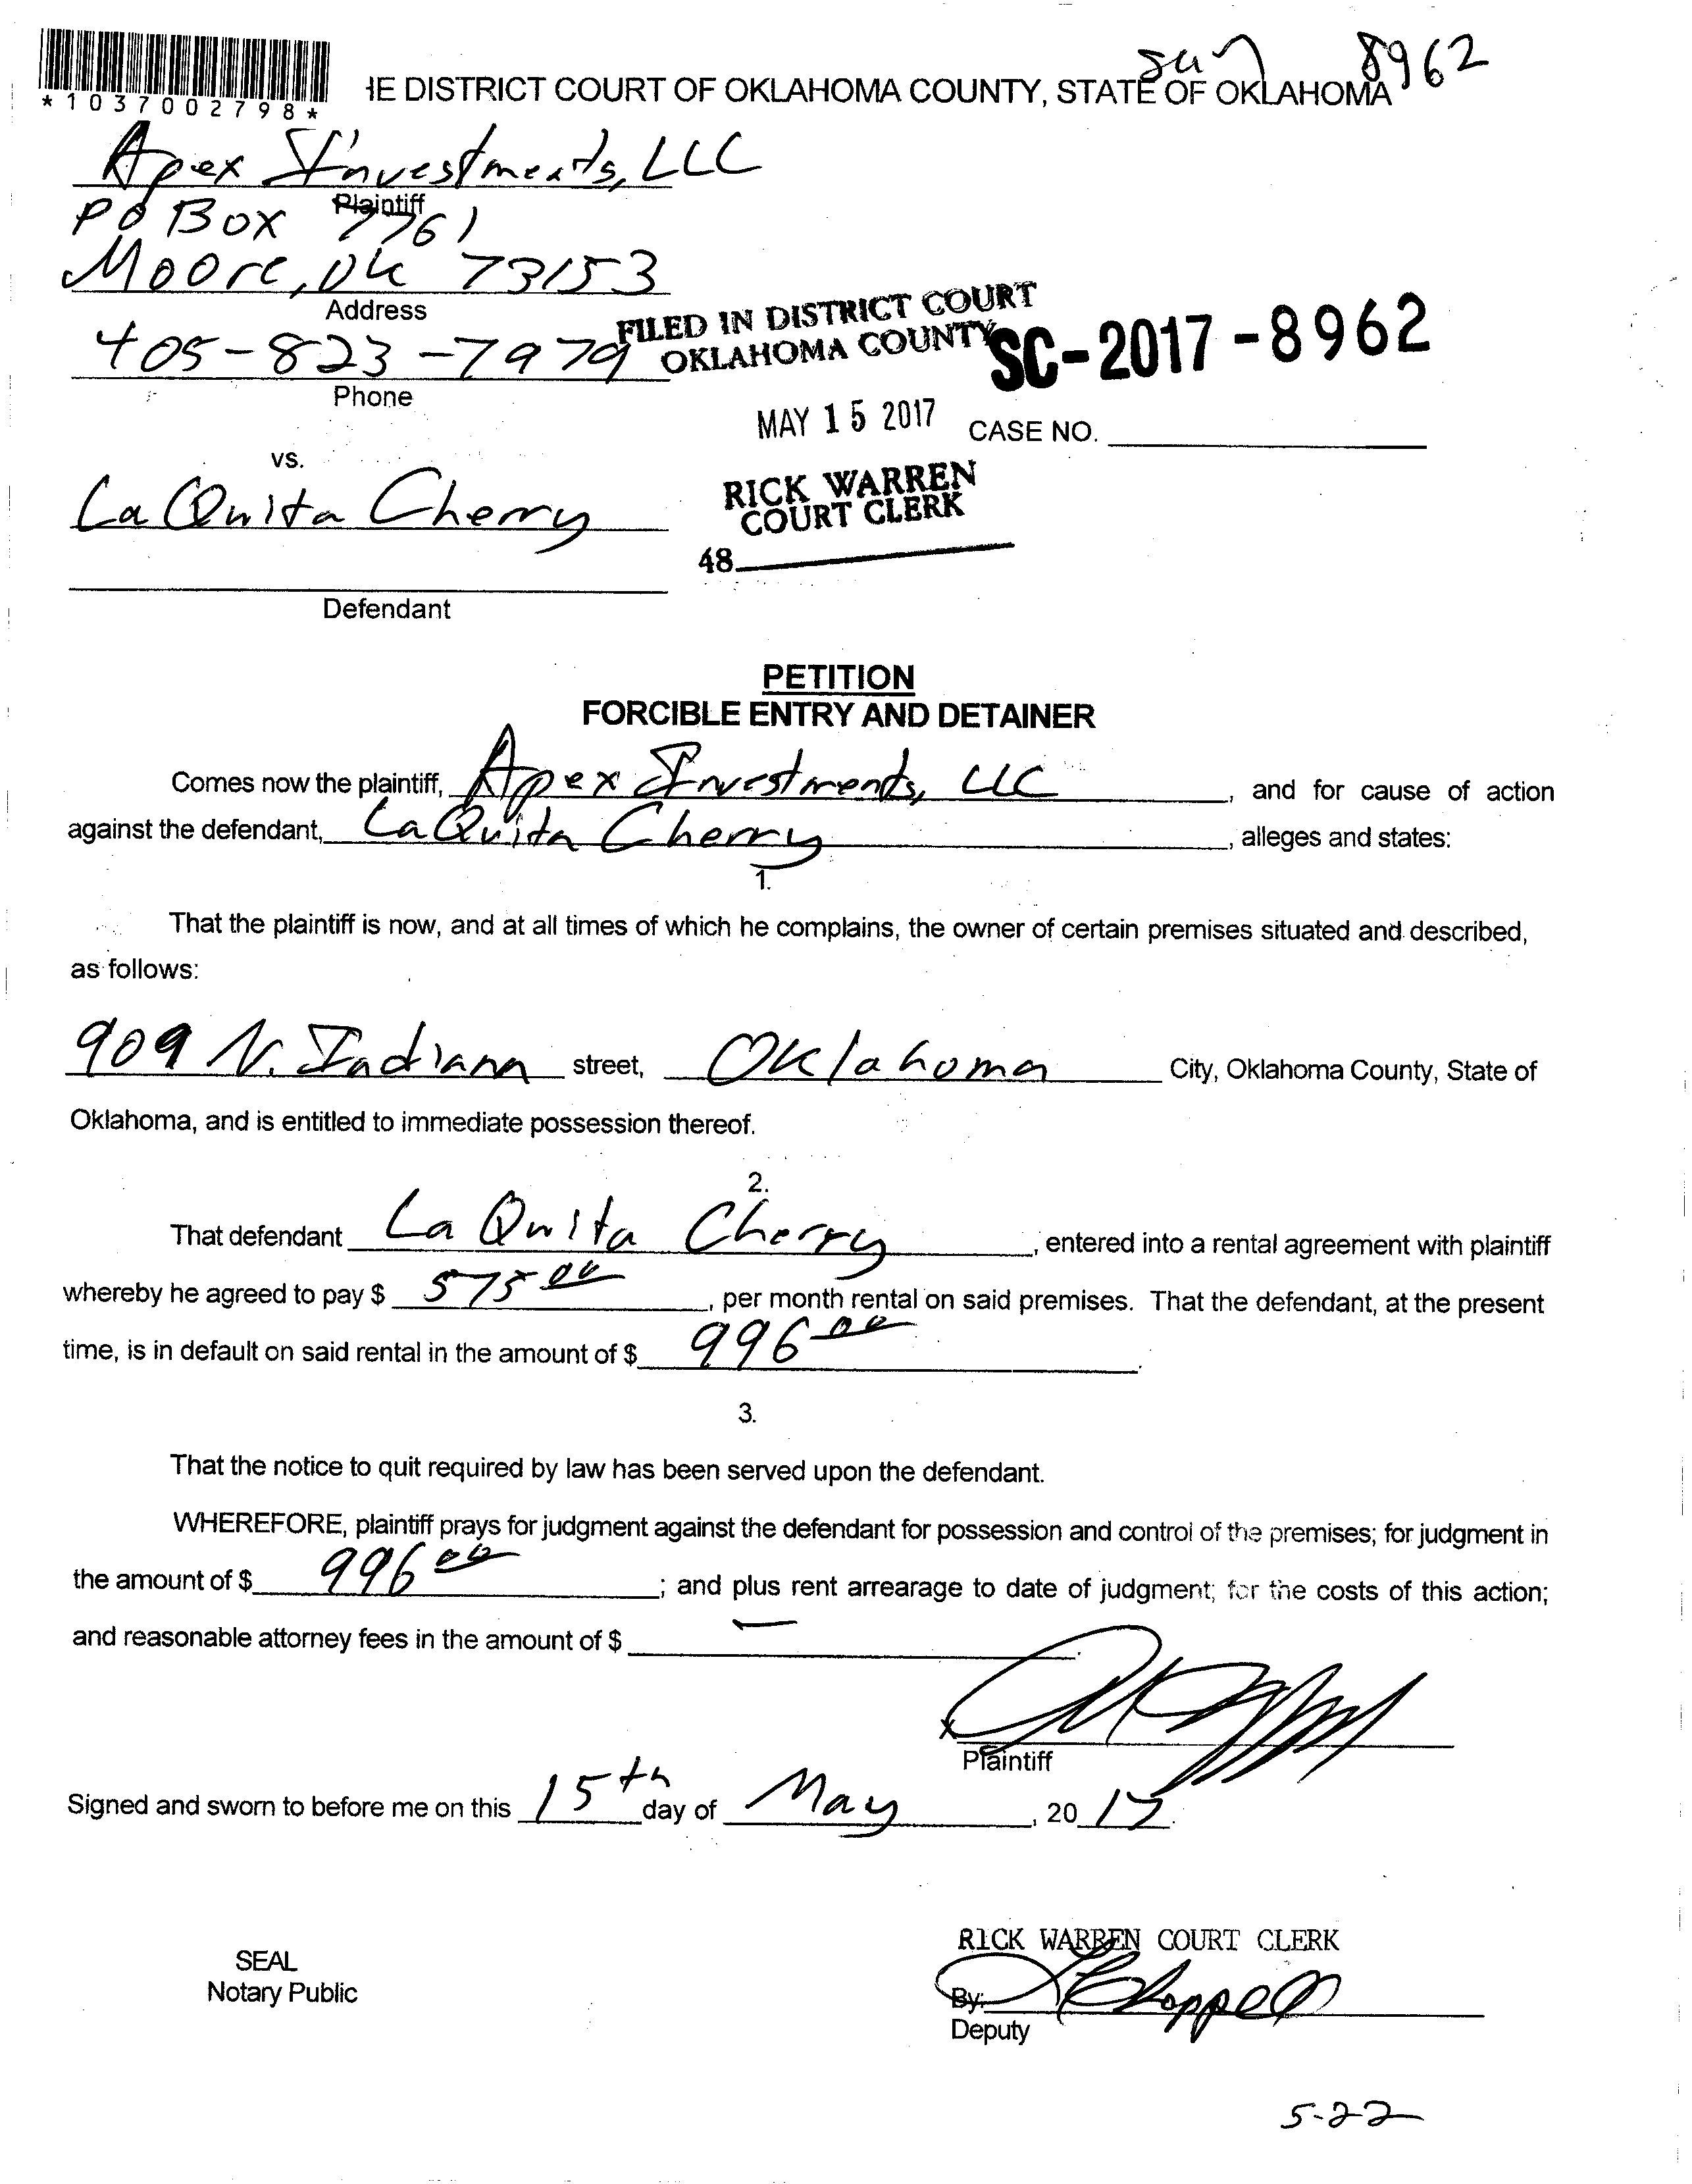 8962
*1037002798*
HE DISTRICT COURT OF OKLAHOMA COUNTY, STATE OF OKLAHOMA
Apex Investments, LLC
Plaintiff
PO Box 7761
Moore, OK 73153
Address
405-823-7979
Phone
FILED IN DISTRICT COURT
OKLAHOMA COUNTY
SC-2017-8962
MAY 15 2017
CASE NO.
vs.
LaQuita Cherry
RICK WARREN
COURT CLERK
48
Defendant
PETITION
FORCIBLE ENTRY AND DETAINER
Comes now the plaintiff, Apex Investments, LLC, and for cause of action
against the defendant, LaQuita Cherry, alleges and states:
1.
That the plaintiff is now, and at all times of which he complains, the owner of certain premises situated and described,
as follows:
909 N. Indiana street, Oklahoma City, Oklahoma County, State of
Oklahoma, and is entitled to immediate possession thereof.
2.
That defendant La Quita Cherry, entered into a rental agreement with plaintiff
whereby he agreed to pay $ 575 00, per month rental on said premises. That the defendant, at the present
time, is in default on said rental in the amount of $ 996 00.
3.
That the notice to quit required by law has been served upon the defendant.
WHEREFORE, plaintiff prays for judgment against the defendant for possession and control of the premises; for judgment in
the amount of $ 996 00; and plus rent arrearage to date of judgment; for the costs of this action;
and reasonable attorney fees in the amount of $ —.
x
Plaintiff
Signed and sworn to before me on this 15th day of May, 2017.
SEAL
Notary Public
RICK WARREN COURT CLERK
By: Chappell
Deputy
5-22